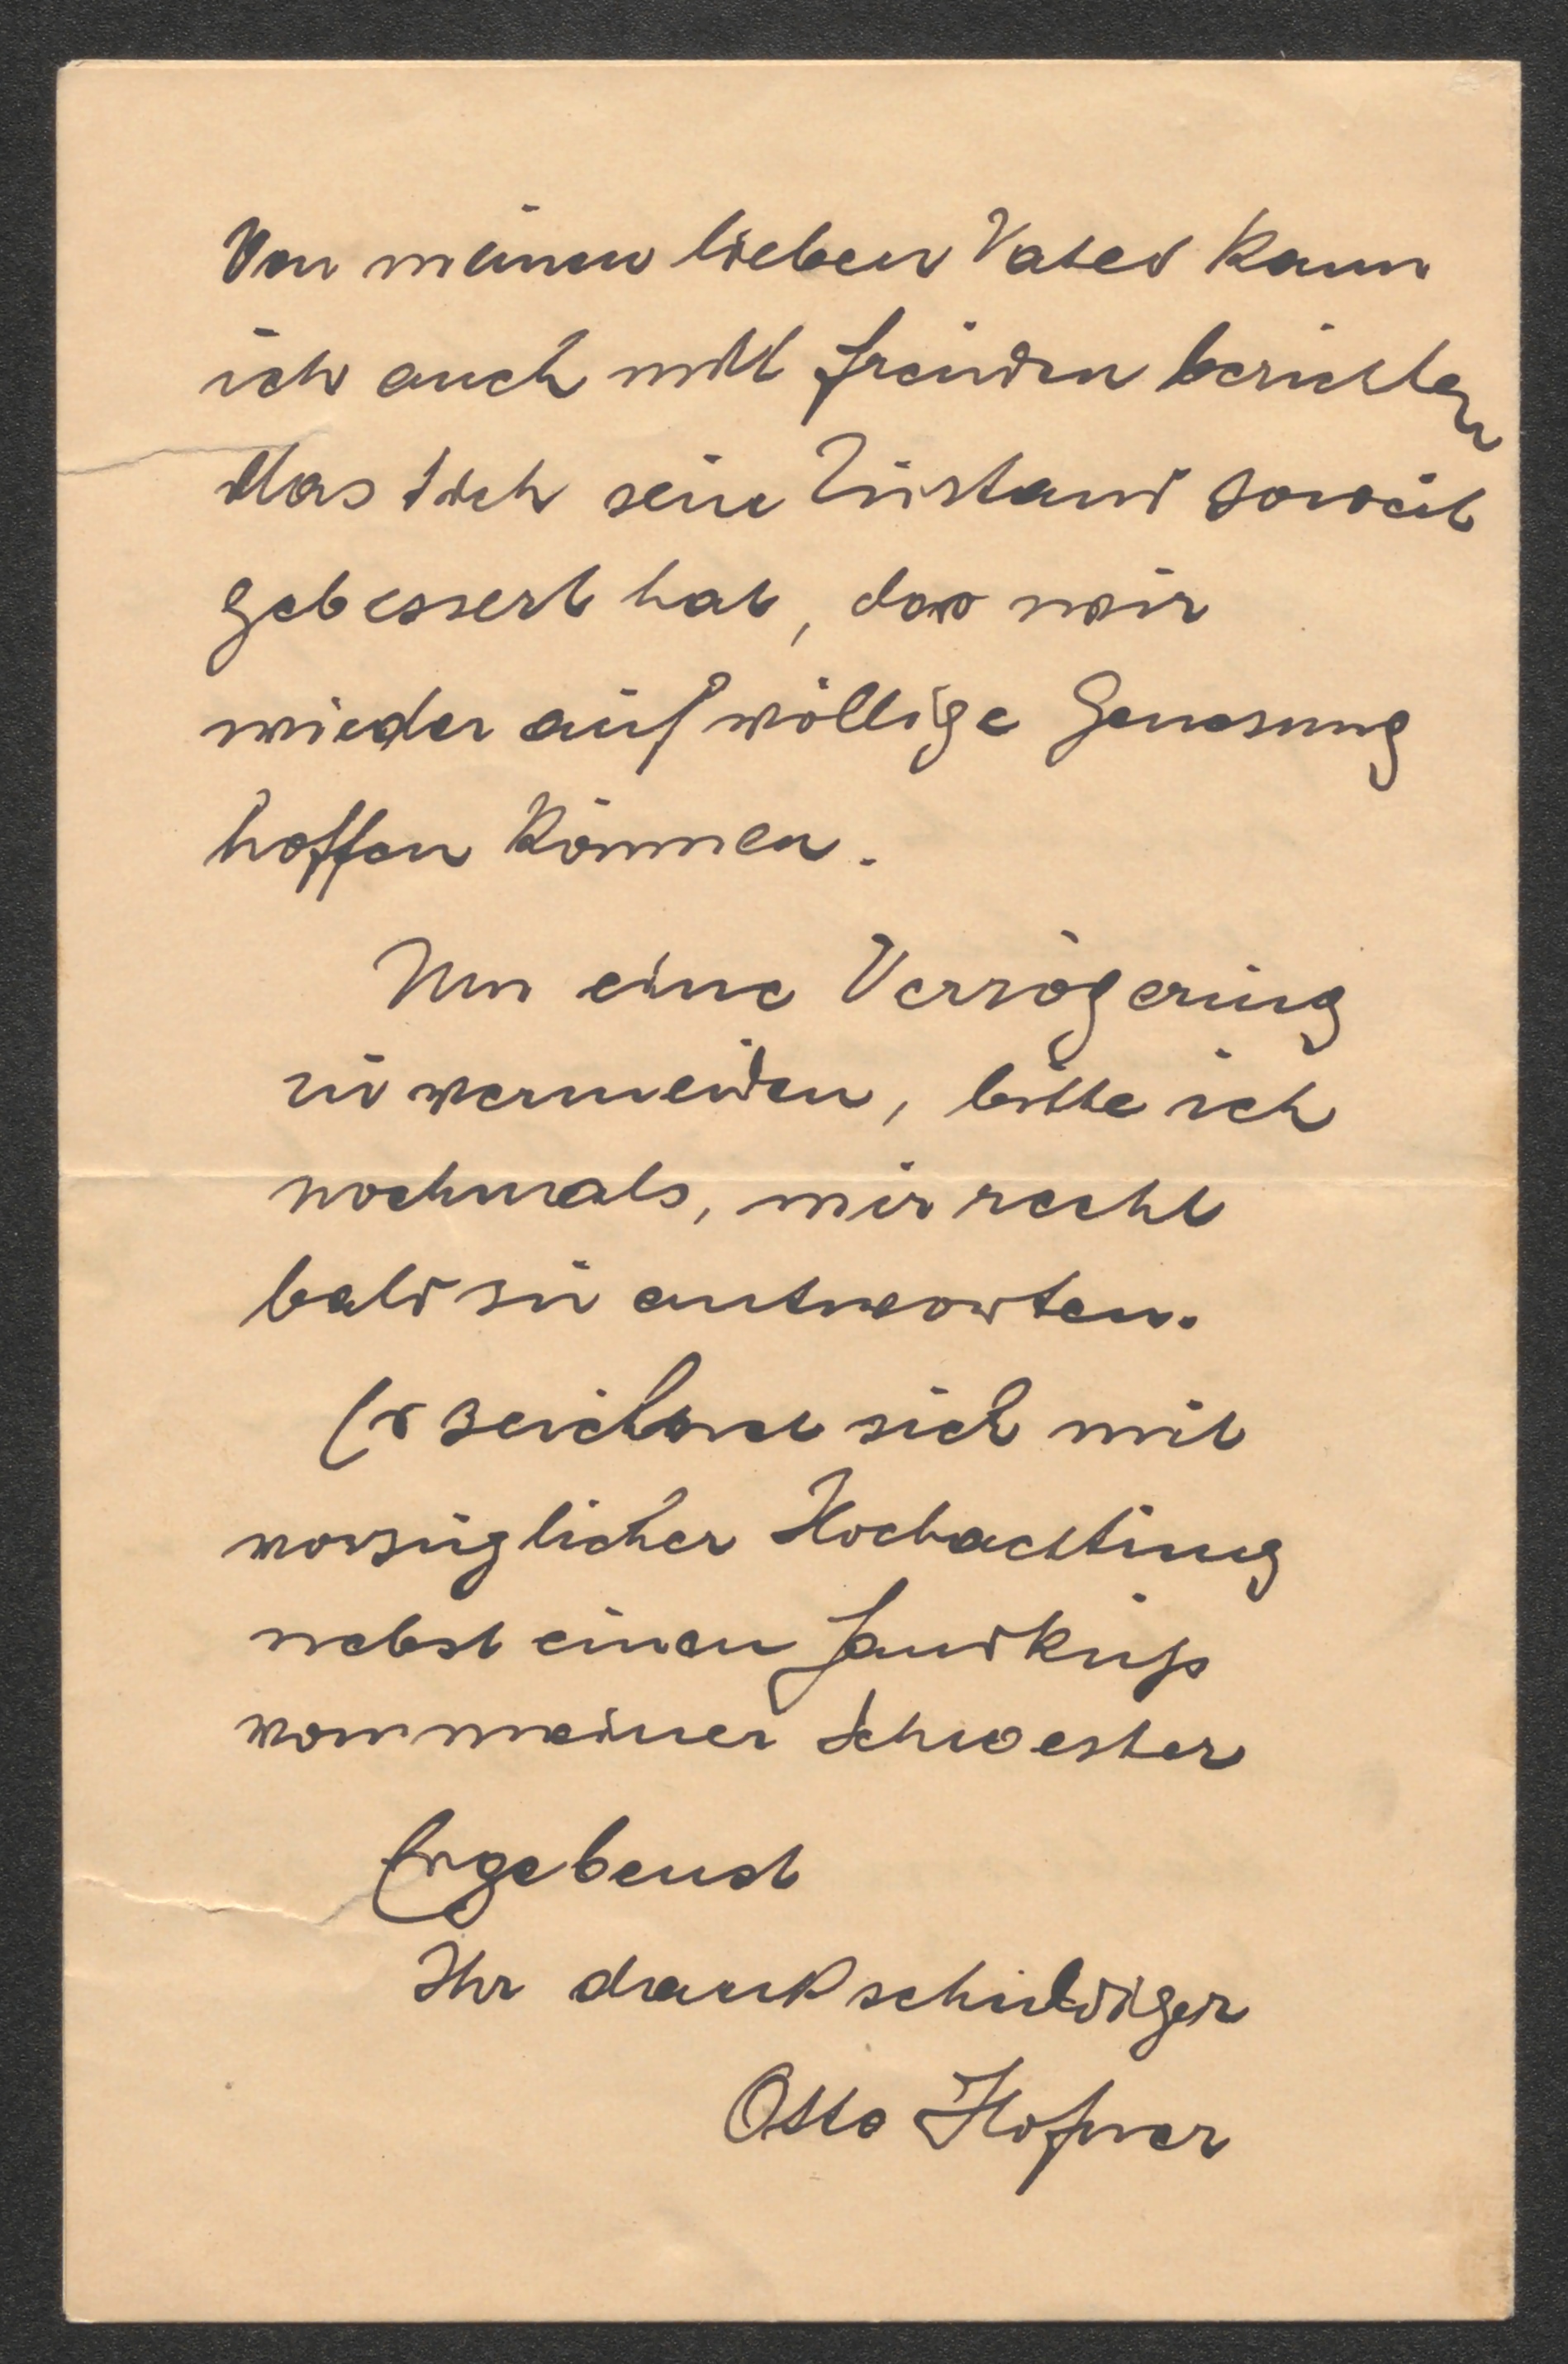 Von meinen lieben Vater kann
ich auch mit freuden berichten
das sich sein Zustand soweit
gebessert hat, dass wir
wieder auf völlige Genesung
hoffen können.
Um eine Verzögerung
zu vermeiden, bitte ich
nochmals, mir recht
bald zu antworten.
Er zeichnet sich mit
vorzüglicher Hochachtung
nebst einen Handkuß
von meiner Schwester
Ergebenst
Ihr dankschuldiger
Otto Hofner